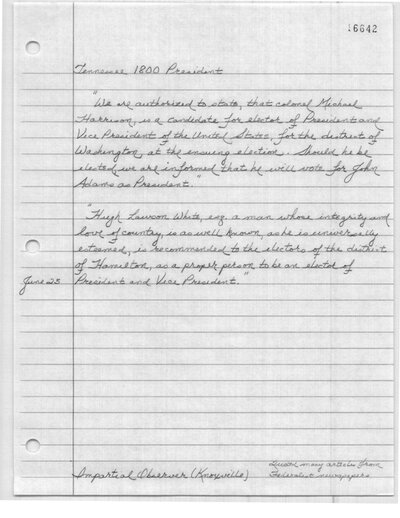 16642
Tennessee 1800 President
"We are authorized to state, that colonel Michael
Harrison, is a candidate for elector of President and
Vice President of the United States, for the district of
Washington, at the ensuing election. Should he be
elected, we are informed that he will vote for John
Adams as President."
"Hugh Lawson White, esq. a man whose integrity and
love of country, is as well known, as he is universally
esteemed, is recommended to the electors of the district
of Hamilton, as a proper person to be an elector of
June 25 President and Vice President."
Impartial Observer (Knoxville)
Quoted many articles from
Federalist newspapers